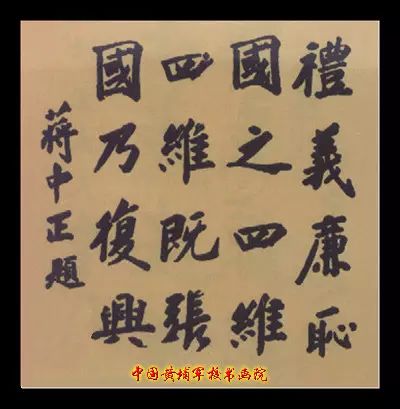 禮義廉恥
國之四維
四維既張
國乃復興
蔣中正題
中国黄埔军校书画院